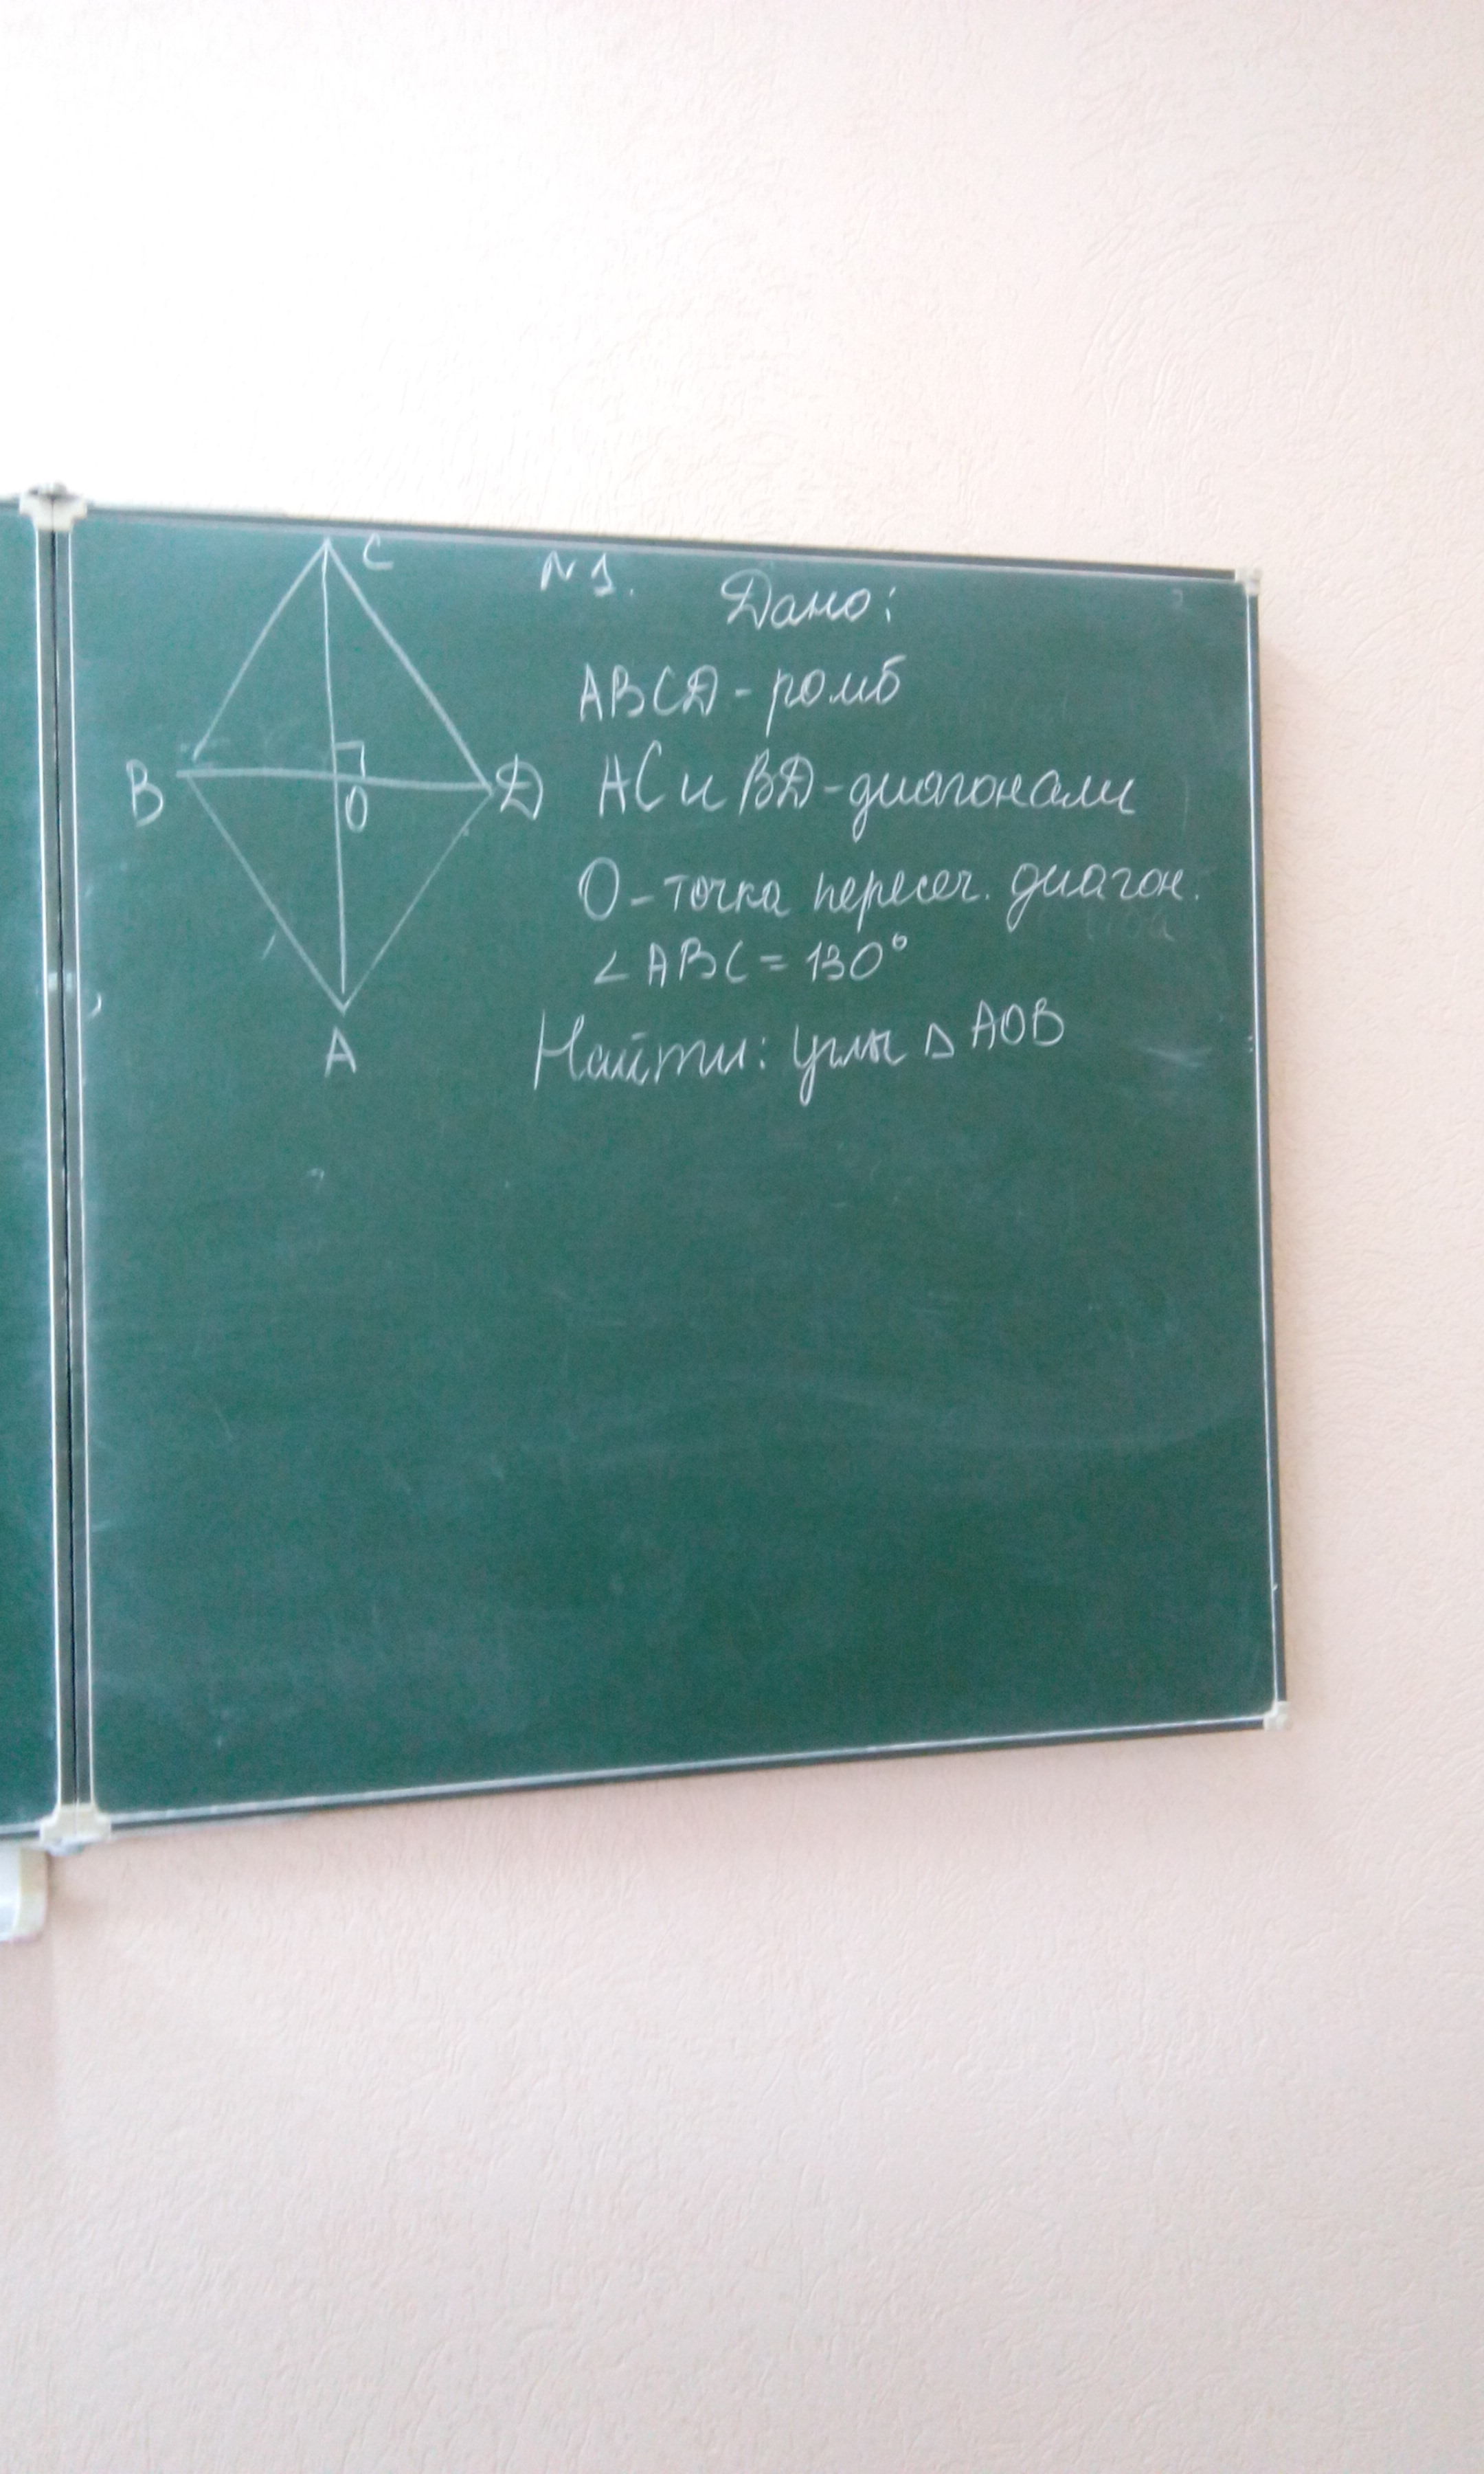 N 1. Дано:
ABCD - ромб
AC и BD - диагонали
O - точка пересеч. диагон.
∠ABC = 130°
Найти: углы △ AOB
C
B
O
D
A